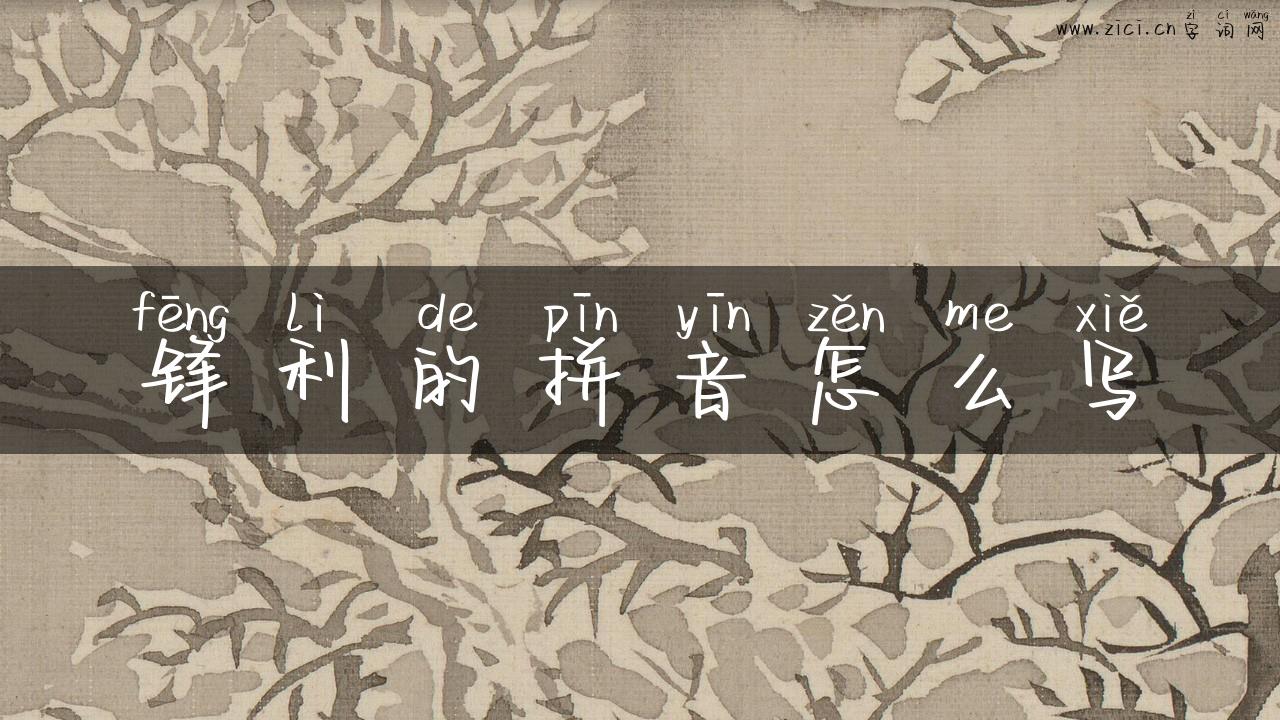 zì cí wǎng
www.zici.cn字词网
fēng lì de pīn yīn zěn me xiě
锋利的拼音怎么写